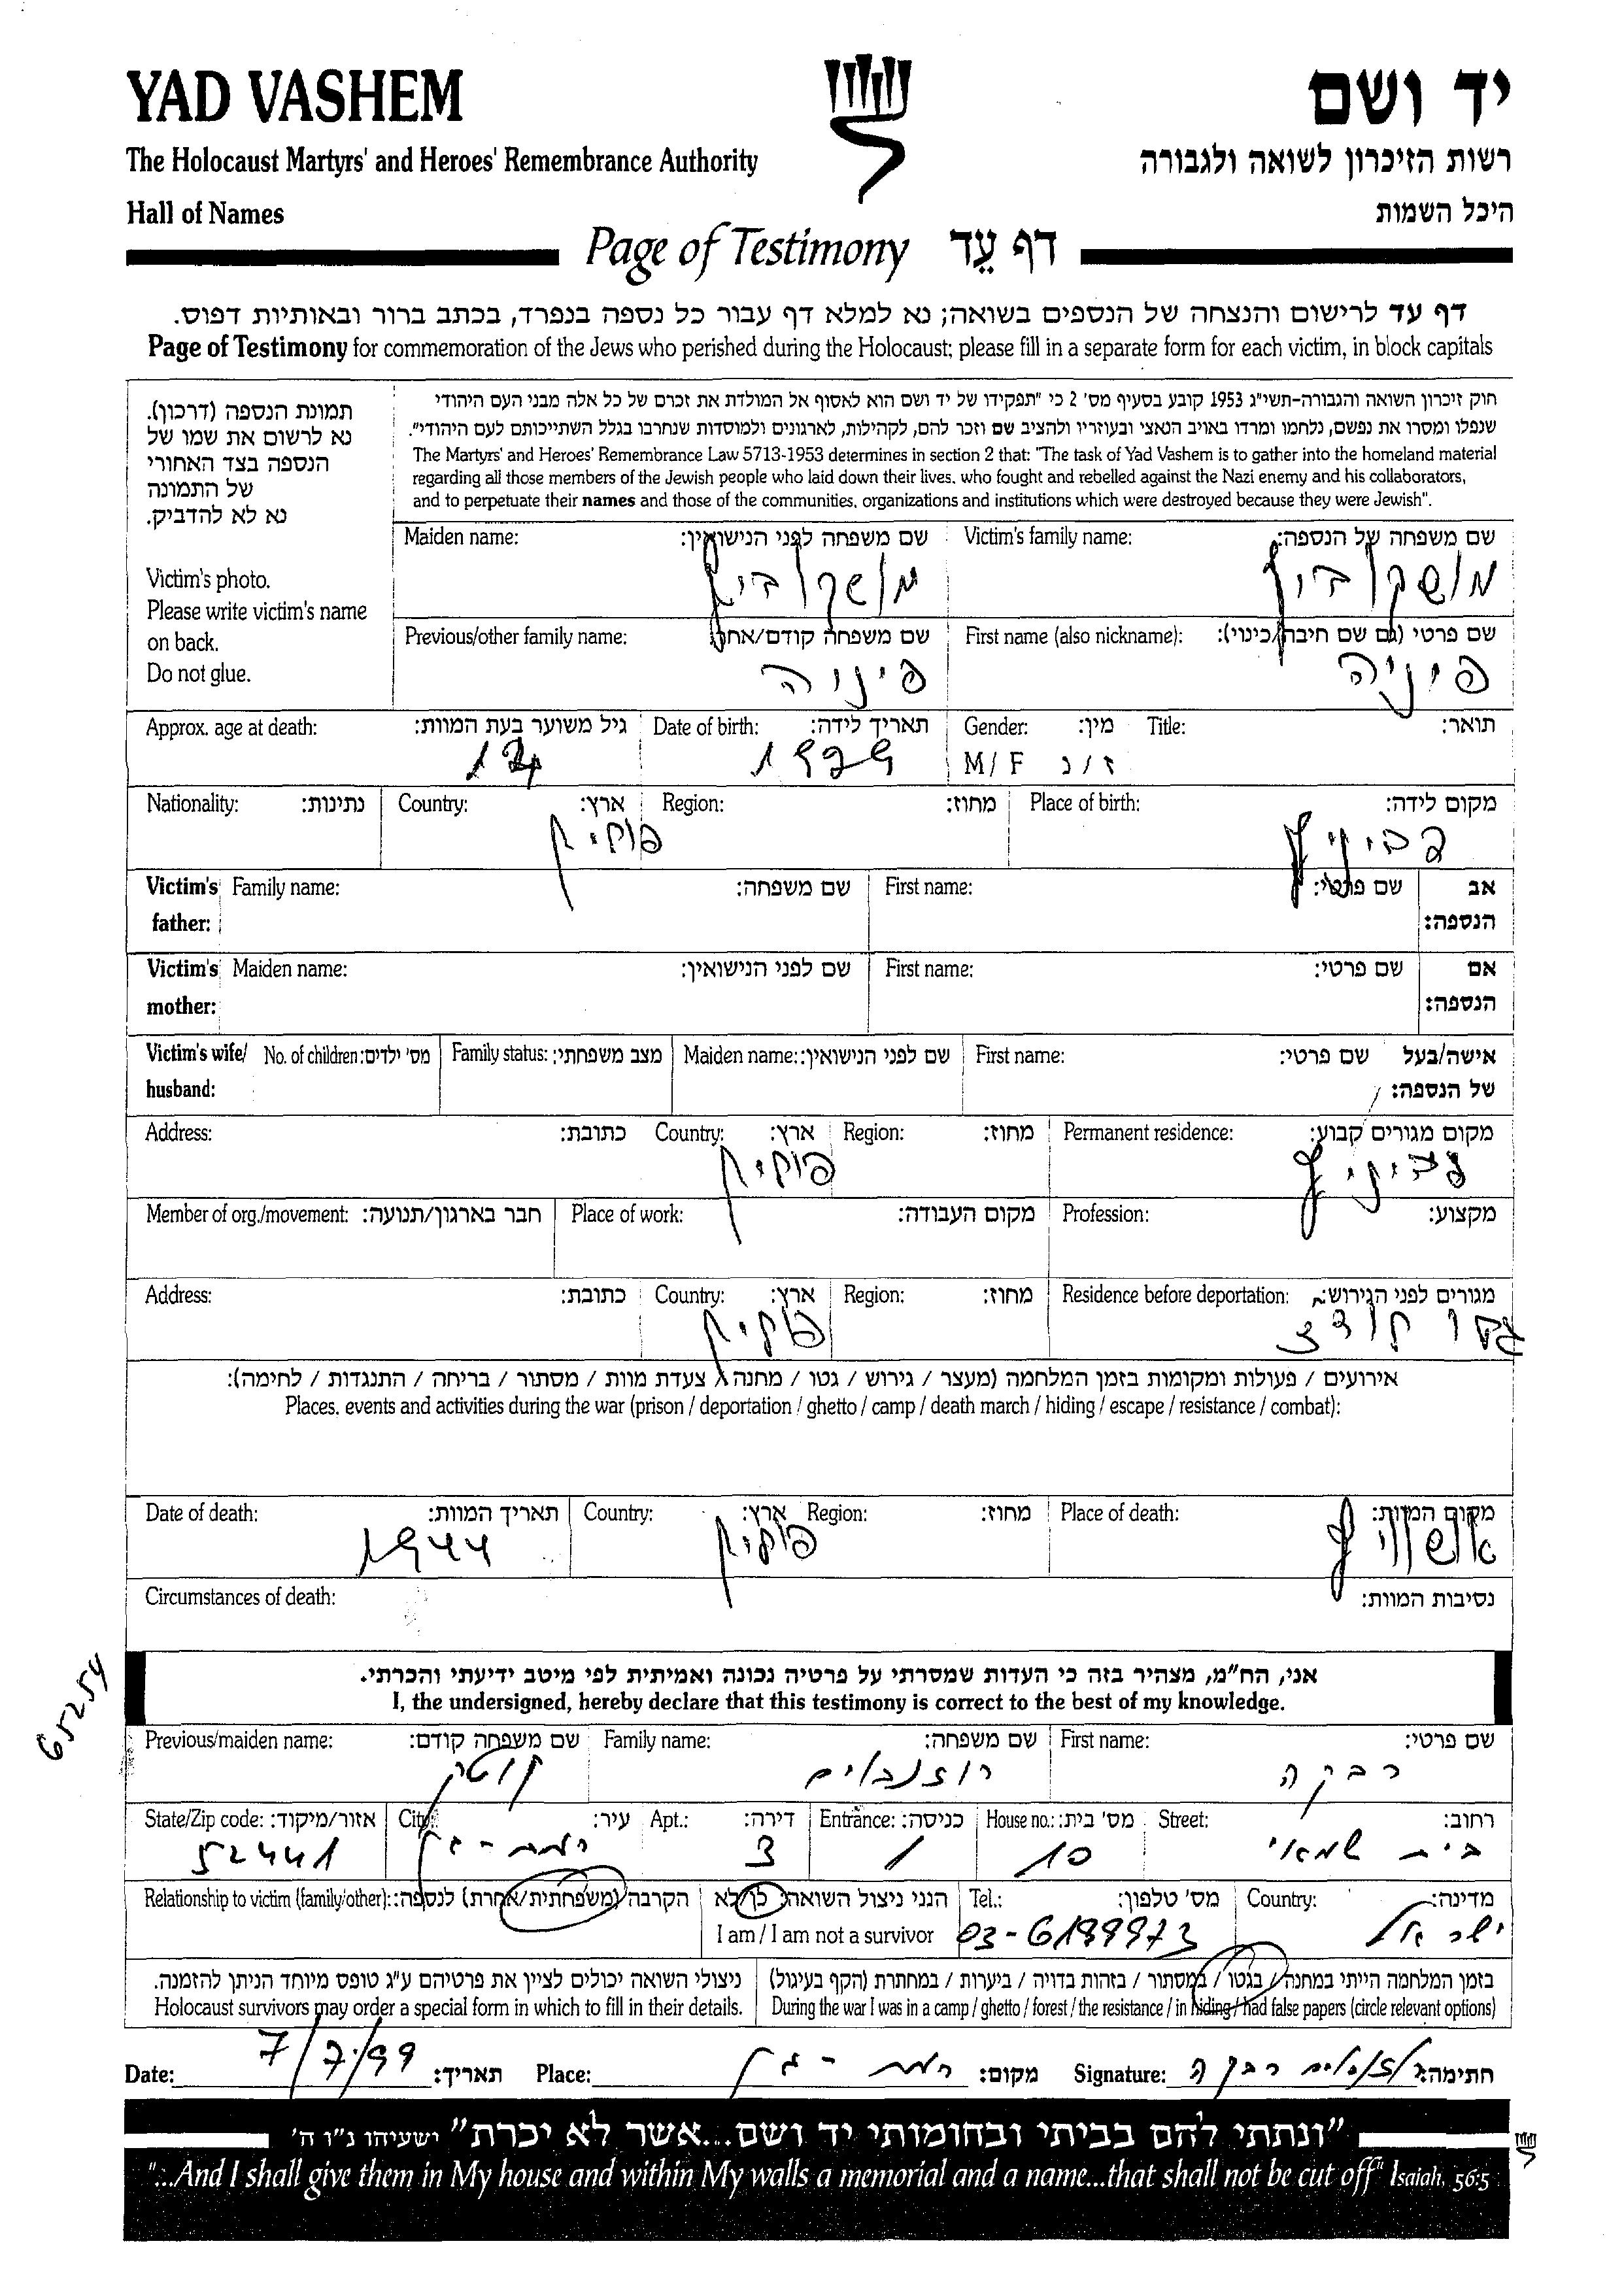 YAD VASHEM
יד ושם
The Holocaust Martyrs' and Heroes' Remembrance Authority
רשות הזיכרון לשואה ולגבורה
Hall of Names
היכל השמות
Page of Testimony דף עֵד
דף עד לרישום והנצחה של הנספים בשואה; נא למלא דף עבור כל נספה בנפרד, בכתב ברור ובאותיות דפוס.
Page of Testimony for commemoration of the Jews who perished during the Holocaust; please fill in a separate form for each victim, in block capitals
תמונת הנספה (דרכון).
נא לרשום את שמו של
הנספה בצד האחורי
של התמונה
נא לא להדביק.
Victim's photo.
Please write victim's name
on back.
Do not glue.
חוק זיכרון השואה והגבורה-תשי"ג 1953 קובע בסעיף מס' 2 כי "תפקידו של יד ושם הוא לאסוף אל המולדת את זכרם של כל אלה מבני העם היהודי
שנפלו ומסרו את נפשם, נלחמו ומרדו באויב הנאצי ובעוזריו ולהציב שם וזכר להם, לקהילות, לארגונים ולמוסדות שנחרבו בגלל השתייכותם לעם היהודי".
The Martyrs' and Heroes' Remembrance Law 5713-1953 determines in section 2 that: "The task of Yad Vashem is to gather into the homeland material
regarding all those members of the Jewish people who laid down their lives, who fought and rebelled against the Nazi enemy and his collaborators,
and to perpetuate their names and those of the communities, organizations and institutions which were destroyed because they were Jewish".
Maiden name: שם משפחה לפני הנישואין: Victim's family name: שם משפחה של הנספה:
מושקוביץ מושקוביץ
Previous/other family name: שם משפחה קודם/אחר: First name (also nickname): שם פרטי (גם שם חיבה/כינוי):
פיניה
Approx. age at death: גיל משוער בעת המוות: Date of birth: תאריך לידה: Gender: מין: Title: תואר:
1929 M/F ז/נ
Nationality: נתינות: Country: ארץ: Region: מחוז: Place of birth: מקום לידה:
פולין
Victim's father: Family name: שם משפחה: First name: שם פרטי: אב הנספה:
Victim's mother: Maiden name: שם לפני הנישואין: First name: שם פרטי: אם הנספה:
Victim's wife/ husband: No. of children: מס' ילדים: Family status: מצב משפחתי: Maiden name: שם לפני הנישואין: First name: שם פרטי: אישה/בעל של הנספה:
Address: כתובת: Country: ארץ: Region: מחוז: Permanent residence: מקום מגורים קבוע:
פולין
Member of org./movement: חבר בארגון/תנועה: Place of work: מקום העבודה: Profession: מקצוע:
Address: כתובת: Country: ארץ: Region: מחוז: Residence before deportation: מגורים לפני הגירוש:
פולין גטו לודז
אירועים / פעולות ומקומות בזמן המלחמה (מעצר / גירוש / גטו / מחנה / צעדת מוות / מסתור / בריחה / התנגדות / לחימה):
Places, events and activities during the war (prison / deportation / ghetto / camp / death march / hiding / escape / resistance / combat):
Date of death: תאריך המוות: Country: ארץ: Region: מחוז: Place of death: מקום המוות:
1944 פולין אושוויץ
Circumstances of death: נסיבות המוות:
65254
אני, הח"מ, מצהיר בזה כי העדות שמסרתי על פרטיה נכונה ואמיתית לפי מיטב ידיעתי והכרתי.
I, the undersigned, hereby declare that this testimony is correct to the best of my knowledge.
Previous/maiden name: שם משפחה קודם: Family name: שם משפחה: First name: שם פרטי:
רוזנבלום רבקה
State/Zip code: אזור/מיקוד: City: עיר: Apt.: דירה: Entrance: כניסה: House no.: מס' בית: Street: רחוב:
52441 רמת-גן 3 1 10 בית שמאי
Relationship to victim (family/other): הקרבה (משפחתית/אחרת) לנספה: הנני ניצול השואה: כן/לא Tel.: מס' טלפון: Country: מדינה:
I am / I am not a survivor 03-6199973 ישראל
ניצולי השואה יכולים לציין את פרטיהם ע"ג טופס מיוחד הניתן להזמנה. בזמן המלחמה הייתי במחנה / בגטו / במסתור / בזהות בדויה / ביערות / במחתרת (הקף בעיגול)
Holocaust survivors may order a special form in which to fill in their details. During the war I was in a camp / ghetto / forest / the resistance / in hiding / had false papers (circle relevant options)
Date: 7/7/99 תאריך: Place: רמת-גן מקום: Signature: רוזנבלום רבקה חתימה:
"ונתתי להם בביתי ובחומותי יד ושם...אשר לא יכרת" ישעיהו נ"ו ה'
"...And I shall give them in My house and within My walls a memorial and a name...that shall not be cut off" Isaiah, 56:5